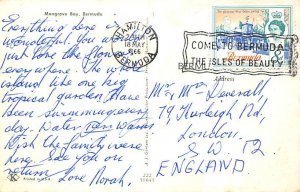 Mangrove Bay, Bermuda
Everything here is
wonderful. You would
just love the flowers
everywhere. The whole
island like one big
tropical garden. Have
been swimming every
day. Water
Wish the family were
here. See you on
return. Love Norah.
HAMILTON
18 MAY
1966
BERMUDA
COME TO BERMUDA
THE ISLES OF BEAUTY
Bermuda
Address
Mr & Mrs Deverall,
79 Thurleigh Rd,
London,
S.W. 12
ENGLAND